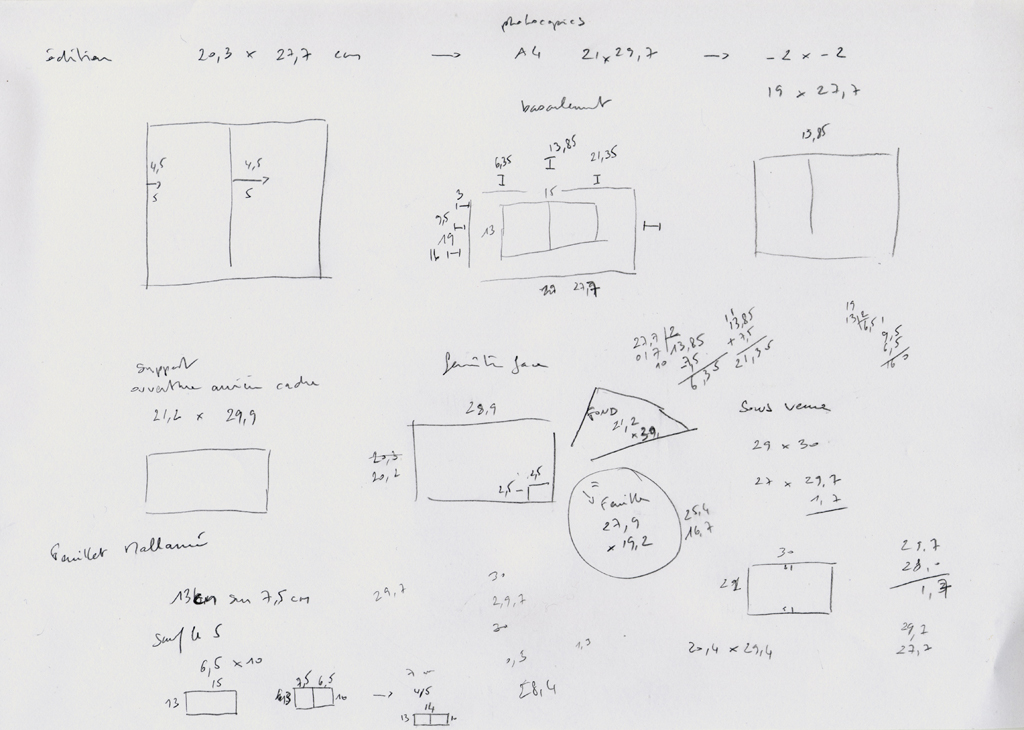 photocopies
édition 20,3 x 27,7 cm → A4 21 x 29,7 → -2 x -2
19 x 27,7
13,85
4,5 4,5
5 5
6,35 13,85 21,35
3 15
9,5
19 13
16
27,7
27,7 2 13,85
01 7 13,85 + 7,5
10 7,5 21,35
6,35
19
9,5
6,5
16 0
support
ouverture arrière cadre
21,2 x 29,9
fenêtre face
28,9
20,3
20,2
2,5 - 2,5
FOND
21,2
= Feuille
27,9
x 19,2
25,4
16,7
Sous verre
29 x 30
27 x 29,7
1,7
30
29
29,7
28,0
1,7
29,2
27,7
20,4 x 29,4
Feuillet Mallarmé
13 cm sur 7,5 cm 29,7
30
2,9,7
30
0,3 1,3
28,4
Sauf le 5
6,5 x 10
15
13
7,5 6,5
13 10
→
4,5
14
13